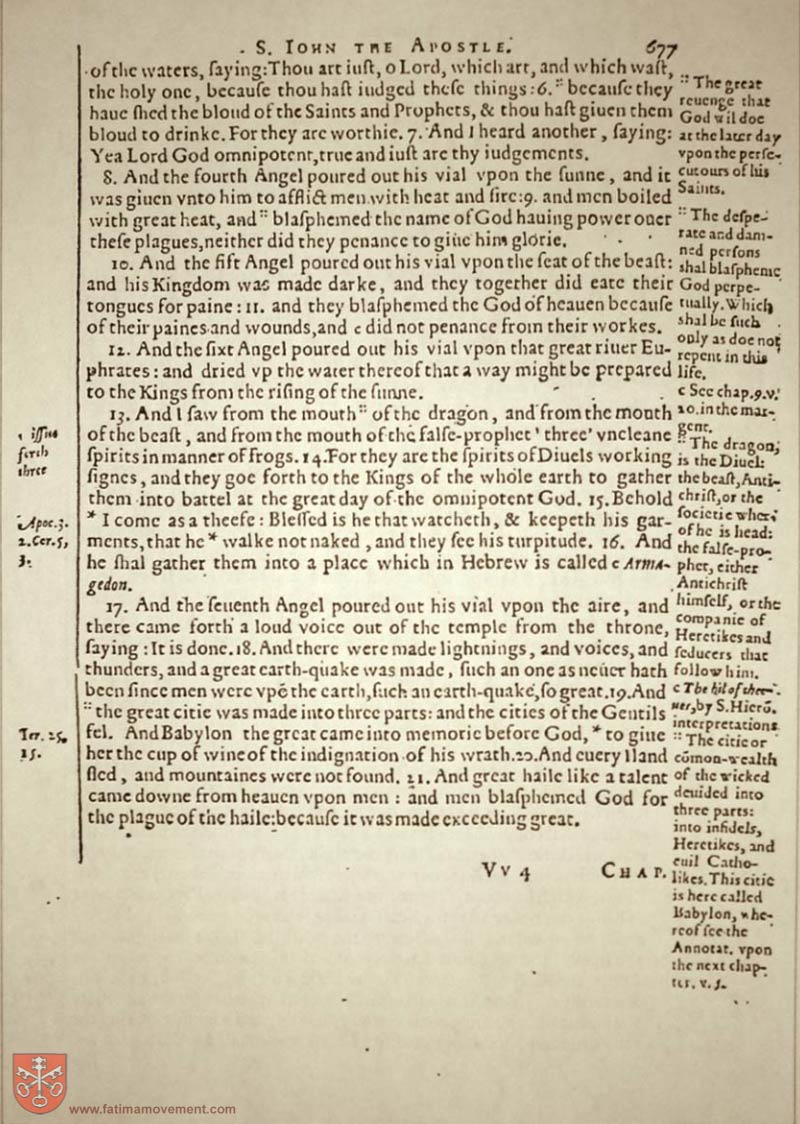 S. IOHN THE APOSTLE. 677
of the waters, ſaying: Thou art iuſt, o Lord, which art, and which waſt,
the holy one, becauſe thou haſt iudged theſe things: 6. :: becauſe they
haue ſhed the bloud of the Saints and Prophets, & thou haſt giuen them
bloud to drinke. For they are worthie. 7. And I heard another, ſaying:
Yea Lord God omnipotent, true and iuſt are thy iudgements.
8. And the fourth Angel poured out his vial vpon the ſunne, and it
was giuen vnto him to afflict men with heat and fire: 9. and men boiled
with great heat, and :: blaſphemed the name of God hauing power ouer
theſe plagues, neither did they penance to giue him glorie.
10. And the fift Angel poured out his vial vpon the ſeat of the beaſt:
and his Kingdom was made darke, and they together did eate their
tongues for paine: 11. and they blaſphemed the God of heauen becauſe
of their paines and wounds, and c did not penance from their workes.
12. And the ſixt Angel poured out his vial vpon that great riuer Eu-
phrates: and dried vp the water thereof that a way might be prepared
to the Kings from the riſing of the ſunne.
13. And I ſaw from the mouth :: of the dragon, and from the mouth
of the beaſt, and from the mouth of the falſe-prophet ' three' vncleane
ſpirits in manner of frogs. 14. For they are the ſpirits of Diuels working
ſignes, and they goe forth to the Kings of the whole earth to gather
them into battel at the great day of the omnipotent God. 15. Behold
* I come as a theefe: Bleſſed is he that watcheth, & keepeth his gar-
ments, that he * walke not naked, and they ſee his turpitude. 16. And
he ſhal gather them into a place which in Hebrew is called c Arma-
gedon.
17. And the ſeuenth Angel poured out his vial vpon the aire, and
there came forth a loud voice out of the temple from the throne,
ſaying: It is done. 18. And there were made lightnings, and voices, and
thunders, and a great earth-quake was made, ſuch an one as neuer hath
been ſince men were vpō the earth, ſuch an earth-quake, ſo great. 19. And
:: the great citie was made into three parts: and the cities of the Gentils
fel. And Babylon the great came into memorie before God, * to giue
her the cup of wine of the indignation of his wrath. 20. And euery Iland
fled, and mountaines were not found. 21. And great haile like a talent
came downe from heauen vpon men: and men blaſphemed God for
the plague of the haile: becauſe it was made exceeding great.
Vv 4 CHAP.
' iſſue
forth
three
Apoc. 3.
2. Cor. 5,
3.
Ier. 25,
15.
:: The great
reuenge that
God wil doe
at the later day
vpon the perſe-
cutours of his
Saints.
:: The deſpe-
rate and dam-
ned perſons
shal blaſpheme
God perpe-
tually. Which
shal be ſuch
only as doe not
repent in this
life.
c See chap. 9. v.
20. in the mar-
gent.
:: The dragon,
is the Diuel:
the beaſt, Anti-
chriſt, or the
ſocietie wher-
of he is head:
the falſe-pro-
phet, either
Antichriſt
himſelf, or the
companie of
Heretikes and
ſeducers that
follow him.
c The hil of thee-
ues, by S. Hierō.
interpretations
:: The citie or
cōmon-wealth
of the wicked
deuided into
three parts:
into infidels,
Heretikes, and
euil Catho-
likes. This citie
is here called
Babylon, whe-
reof ſee the
Annotat. vpon
the next chap-
ter. v. 5.
www.fatimamovement.com